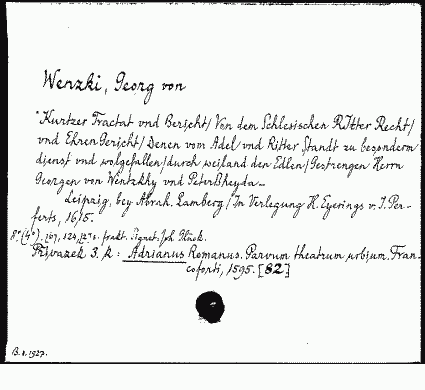 Wenzki, Georg von
"Kurtzer Tractat vnd Bericht/ Von dem Schlesischen RItter Recht/
vnd EhrenGericht/ Denen vom Adel vnd Ritter Standt zu besonderm
dienst vnd wolgefallen/ durch weiland den Edlen/ Gestrengen Herrn
Georgen von Wentzkhy vnd Petersheyda_
Leipzig, bey Abrah. Lamberg/ In Verlegung H. Eyerings v. J. Per-
ferts, 1615.
8° (4°) 124, frakt. Signet. Joh. Glück.
Přívazek 3. k: Adrianus Romanus. Parvum theatrum urbium. Fran-
coforti, 1595. [82]
1927.